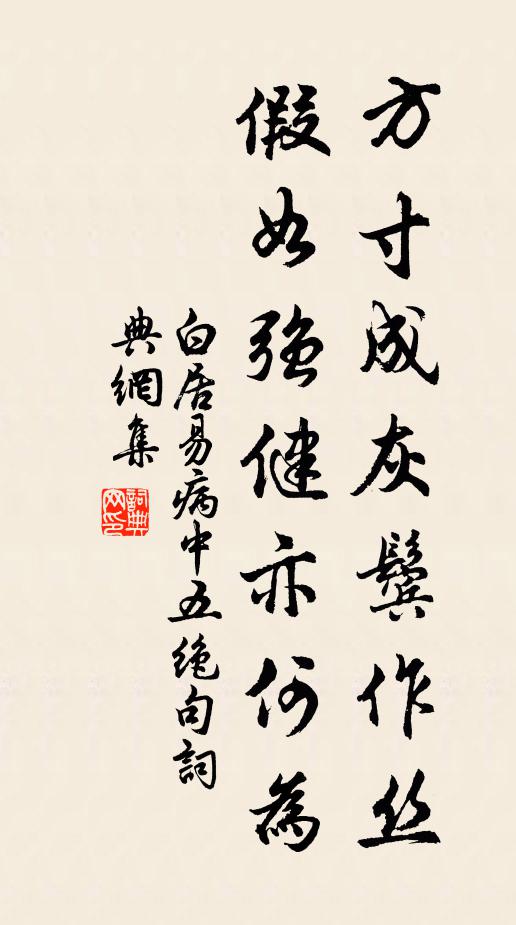 方寸成灰鬓作丝
假如強健亦何為
白居易病中五绝句詞
典網集
詞典网印